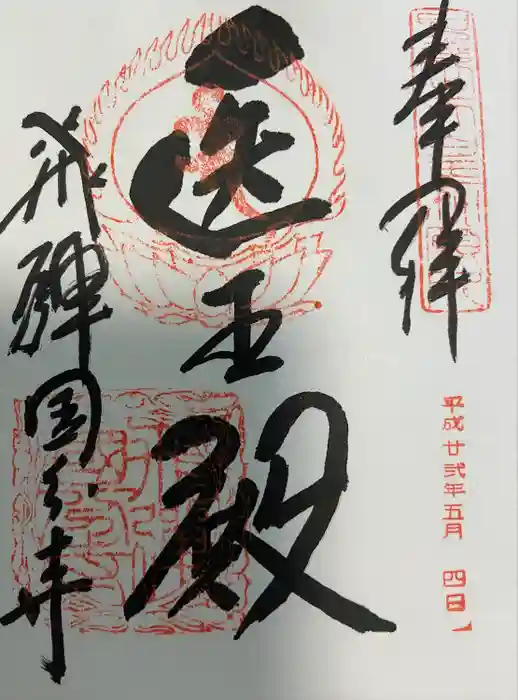 奉拝
平成廿弐年五月 四日
医王殿
飛騨国分寺